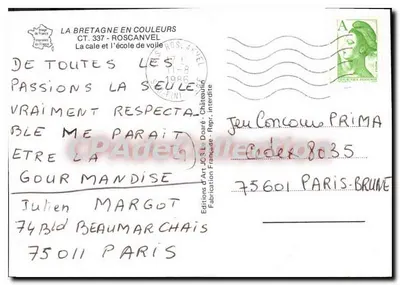 LA BRETAGNE EN COULEURS
CT. 337 - ROSCANVEL
La cale et l'école de voile
DE TOUTES LES
PASSIONS LA SEULE
VRAIMENT RESPECTA-
BLE ME PARAIT
ETRE LA
GOURMANDISE
Julien MARGOT
74 Bld BEAUMARCHAIS
75011 PARIS
Editions d'Art JOS Le Doaré - Châteaulin
Fabrication Française - Repr. interdite
ROSCANVEL
1986
A
Jeu Concours PRIMA
Cedex 8035
75601 PARIS-BRUNE